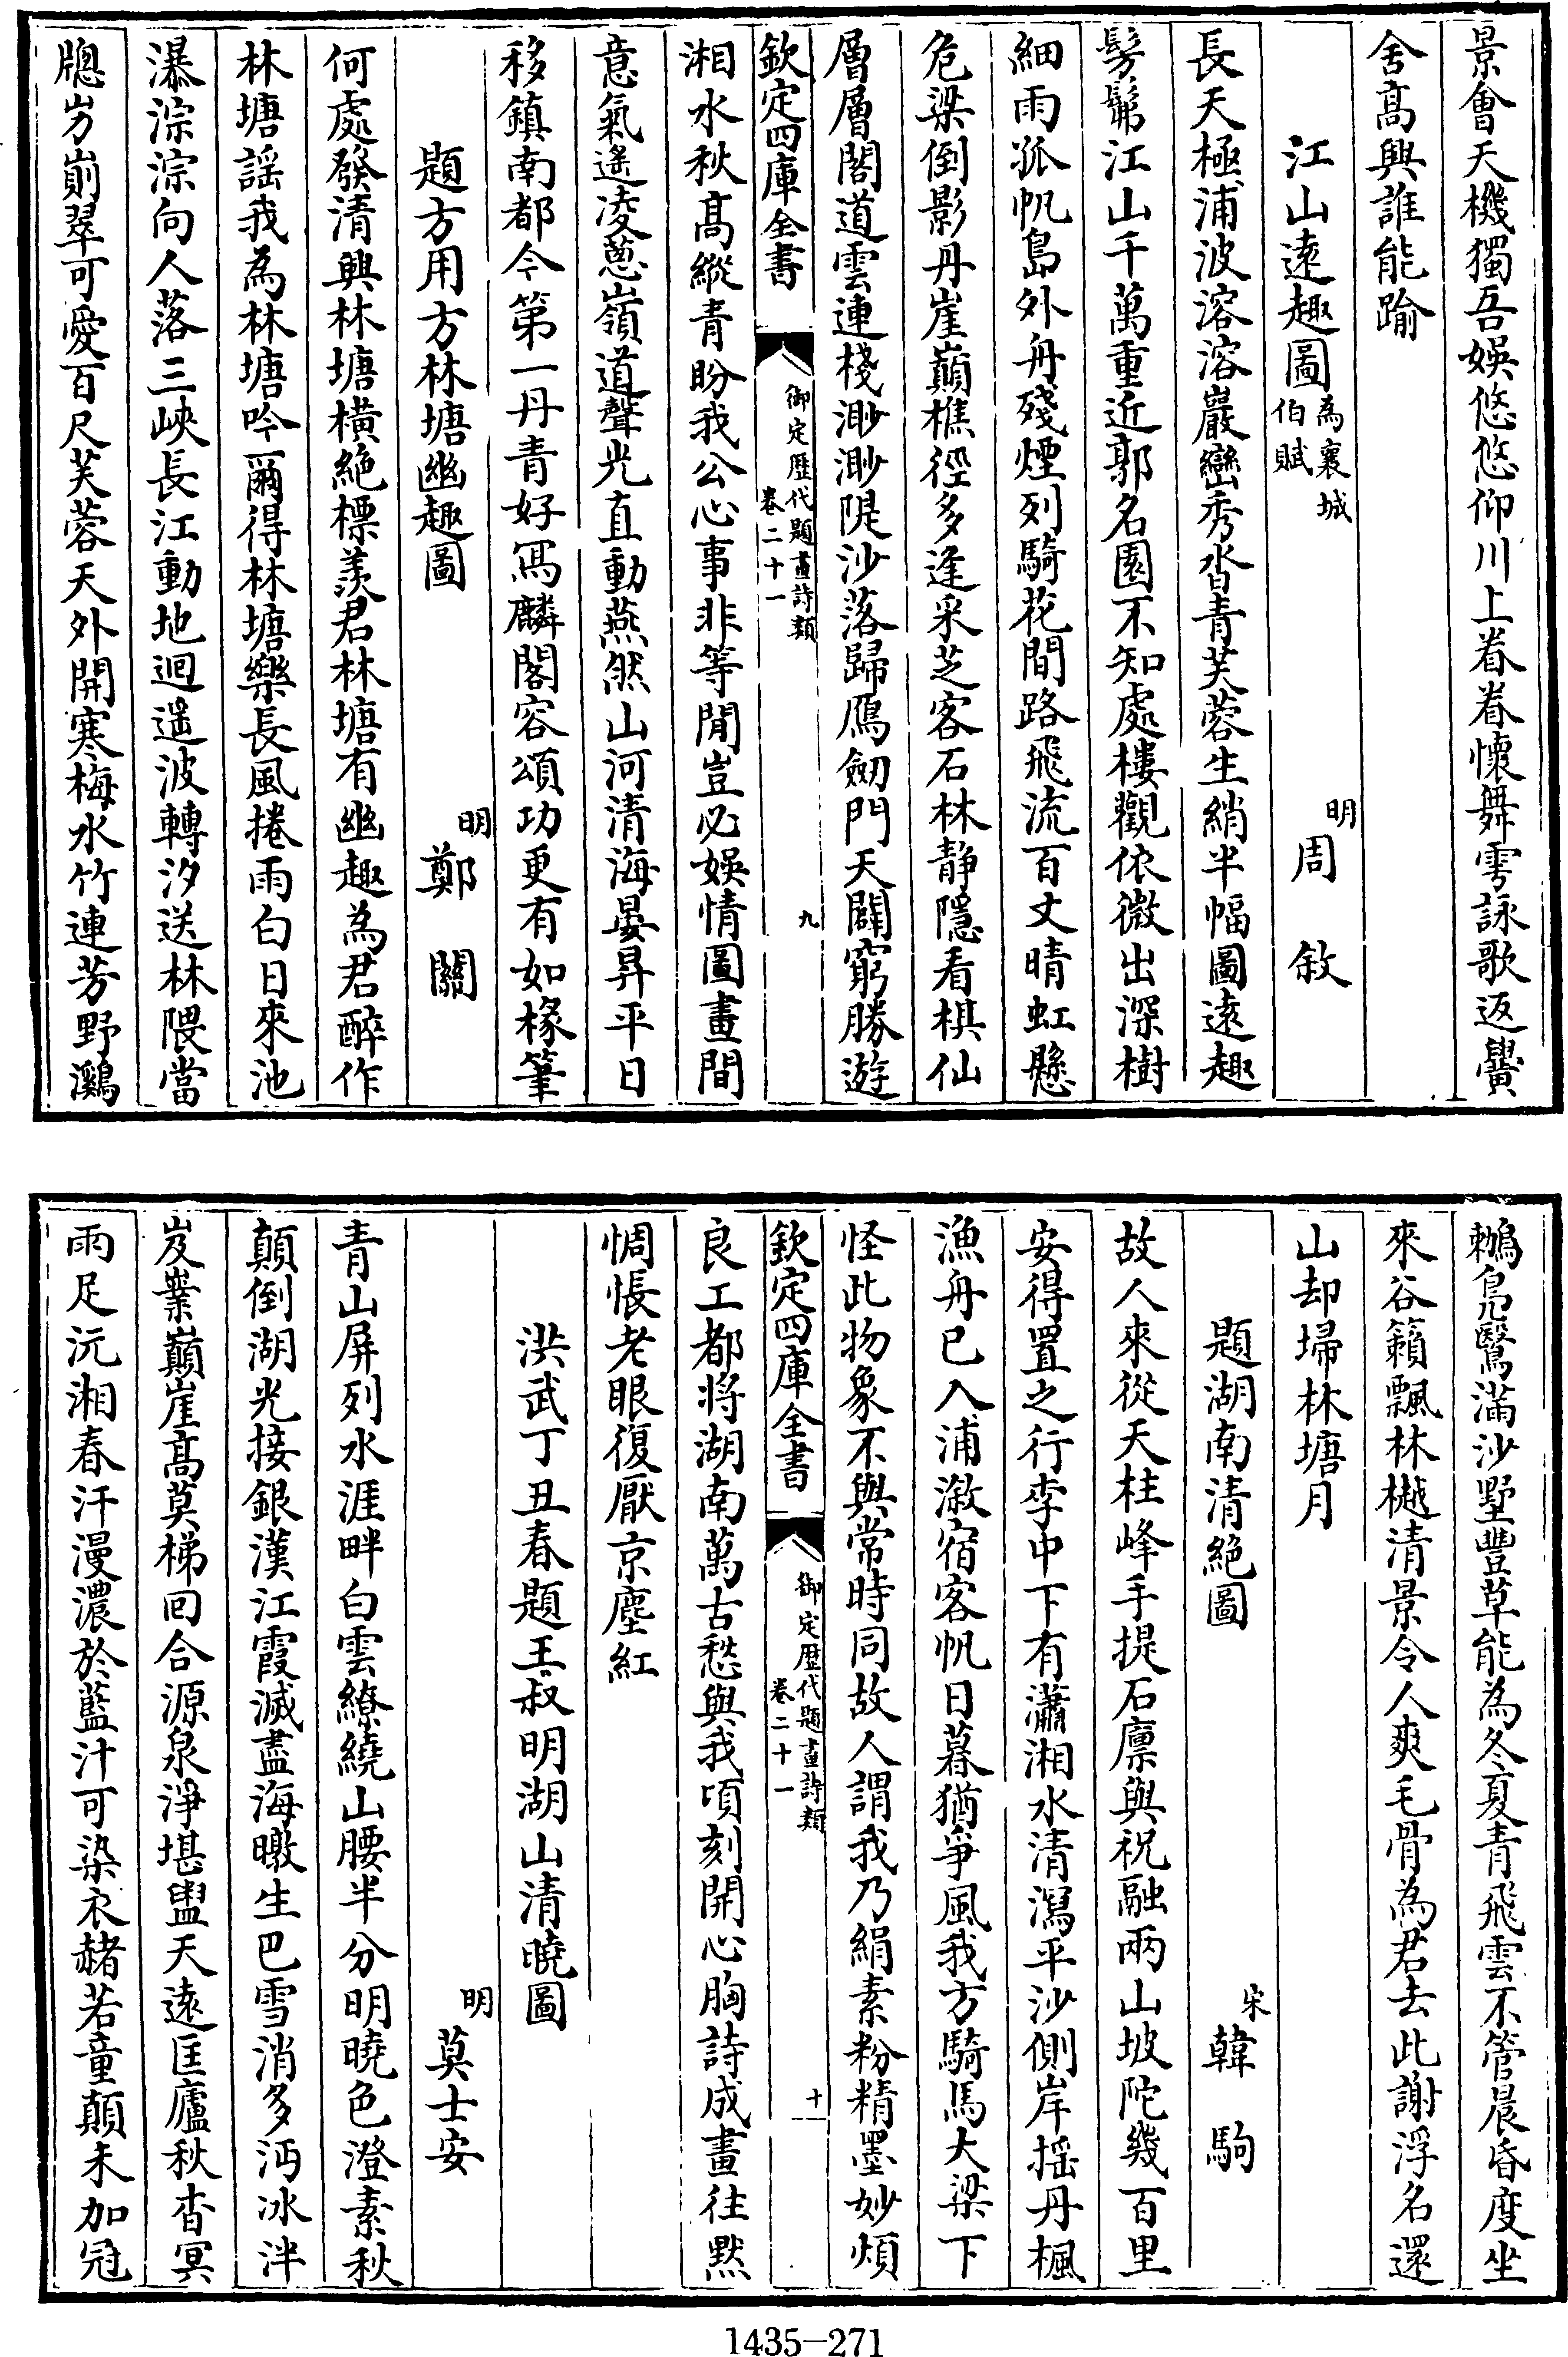 景會天機獨吾娛悠悠仰川上眷眷懷舞雩詠歌返黌
舍高興誰能踰
江山遠趣圖為襄城伯賦 明周敘
長天極浦波溶溶巖巒秀沓青芙蓉生綃半幅圖遠趣
髣髴江山千萬重近郭名園不知處樓觀依微出深樹
細雨孤帆島外舟殘煙列騎花間路飛流百丈晴虹懸
危梁倒影丹崖巔樵徑多逢采芝客石林靜隱看棋仙
層層閣道雲連棧渺渺隄沙落歸鴈劒門天闢窮勝遊
欽定四庫全書 御定歷代題畫詩類 卷二十一 九
湘水秋高縱青盼我公心事非等閒豈必娛情圖畫間
意氣遙凌蔥嶺道聲光直動燕然山河清海晏昇平日
移鎮南都今第一丹青好寫麟閣容頌功更有如椽筆
題方用方林塘幽趣圖 明鄭關
何處發清興林塘橫絕標羨君林塘有幽趣為君醉作
林塘謡我為林塘吟爾得林塘樂長風捲雨白日來池
瀑淙淙向人落三峽長江動地迴遥波轉汐送林隈當
牕岃崱翠可愛百尺芙蓉天外開寒梅水竹連芳野鸂
鶒鳬鷖滿沙墅豐草能為冬夏青飛雲不管晨昏度坐
來谷籟飄林樾清景令人爽毛骨為君去此謝浮名還
山却埽林塘月
題湖南清絕圖 宋韓駒
故人來從天柱峰手提石廪與祝融兩山坡陀幾百里
安得置之行李中下有瀟湘水清瀉平沙側岸揺丹楓
漁舟已入浦漵宿客帆日暮猶爭風我方騎馬大梁下
怪此物象不與常時同故人謂我乃絹素粉精墨妙煩
欽定四庫全書 御定歷代題畫詩類 卷二十一 十
良工都將湖南萬古愁與我頃刻開心胸詩成畫往黙
惆悵老眼復厭京塵紅
洪武丁丑春題王叔明湖山清曉圖
明莫士安
青山屏列水涯畔白雲繚繞山腰半分明曉色澄素秋
顛倒湖光接銀漢江霞滅盡海暾生巴雪消多沔冰泮
岌嶪巔崖高莫梯回合源泉淨堪盥天遠匡廬秋杳冥
雨足沅湘春汗漫濃於藍汁可染衣赭若童顛未加冠
1435-271